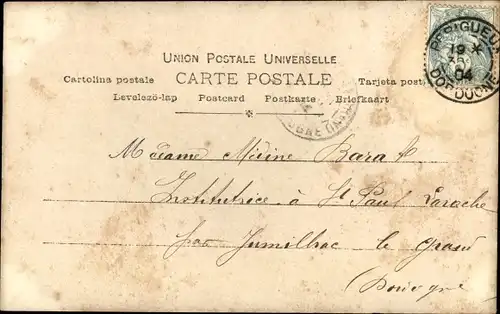 UNION POSTALE UNIVERSELLE
Cartolina postale CARTE POSTALE Tarjeta post
Levelező-lap Postcard Postkarte Briefkaart
PERIGUEU
19 *
04
DORDOGNE
Madame
Institutrice à St Paul Laroche
par Jumilhac le Grand